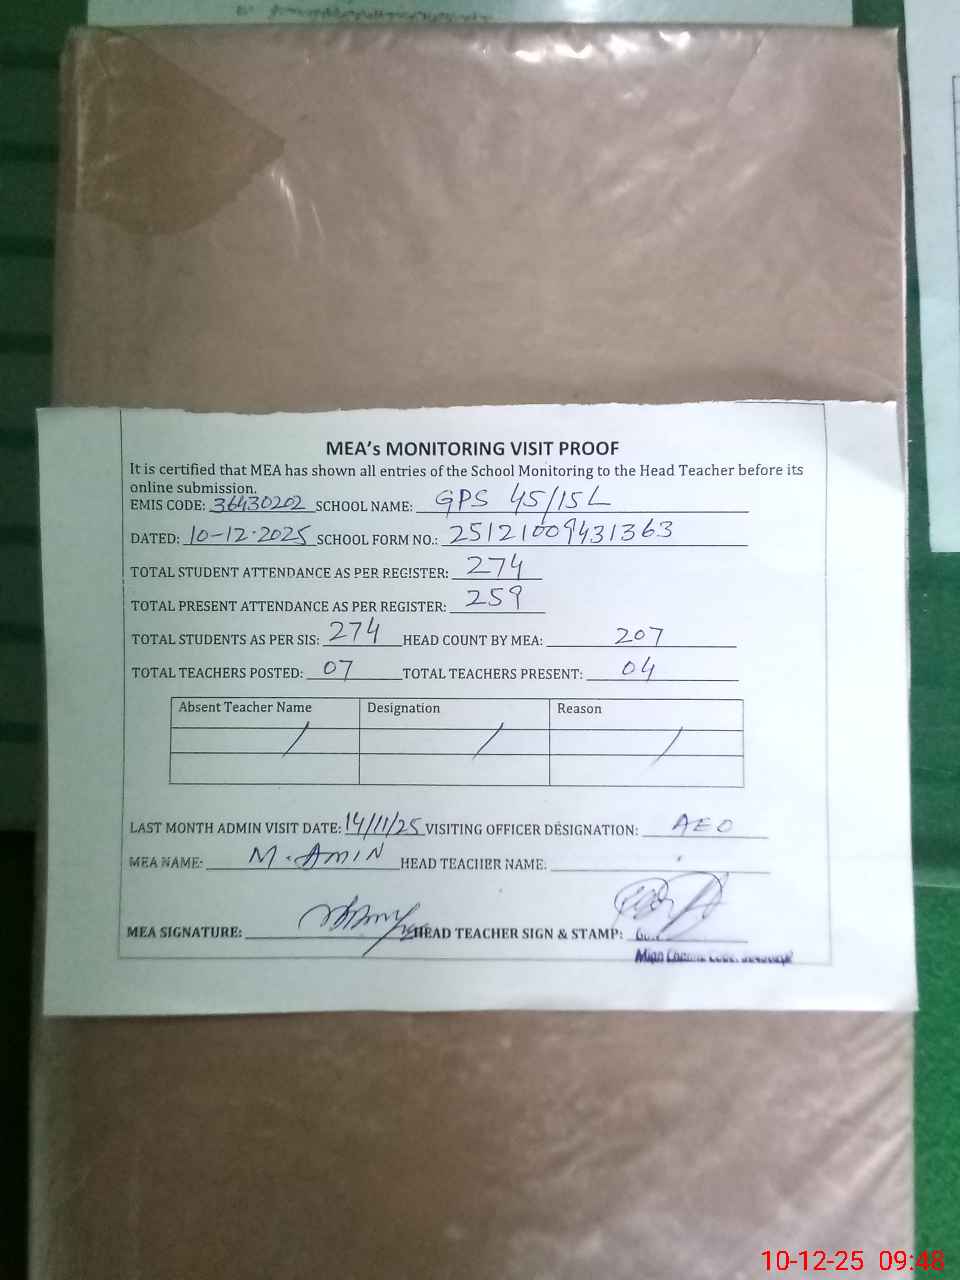 MEA's MONITORING VISIT PROOF
It is certified that MEA has shown all entries of the School Monitoring to the Head Teacher before its
online submission.
EMIS CODE: 36430202 SCHOOL NAME: GPS 45/15L
DATED: 10-12-2025 SCHOOL FORM NO.: 25121009431363
TOTAL STUDENT ATTENDANCE AS PER REGISTER: 274
TOTAL PRESENT ATTENDANCE AS PER REGISTER: 259
TOTAL STUDENTS AS PER SIS: 274 HEAD COUNT BY MEA: 207
TOTAL TEACHERS POSTED: 07 TOTAL TEACHERS PRESENT: 04
Absent Teacher Name Designation Reason
/ / /
LAST MONTH ADMIN VISIT DATE: 14/11/25 VISITING OFFICER DESIGNATION: AEO
MEA NAME: M. AMIN HEAD TEACHER NAME:
MEA SIGNATURE: HEAD TEACHER SIGN & STAMP:
Mian
10-12-25 09:48